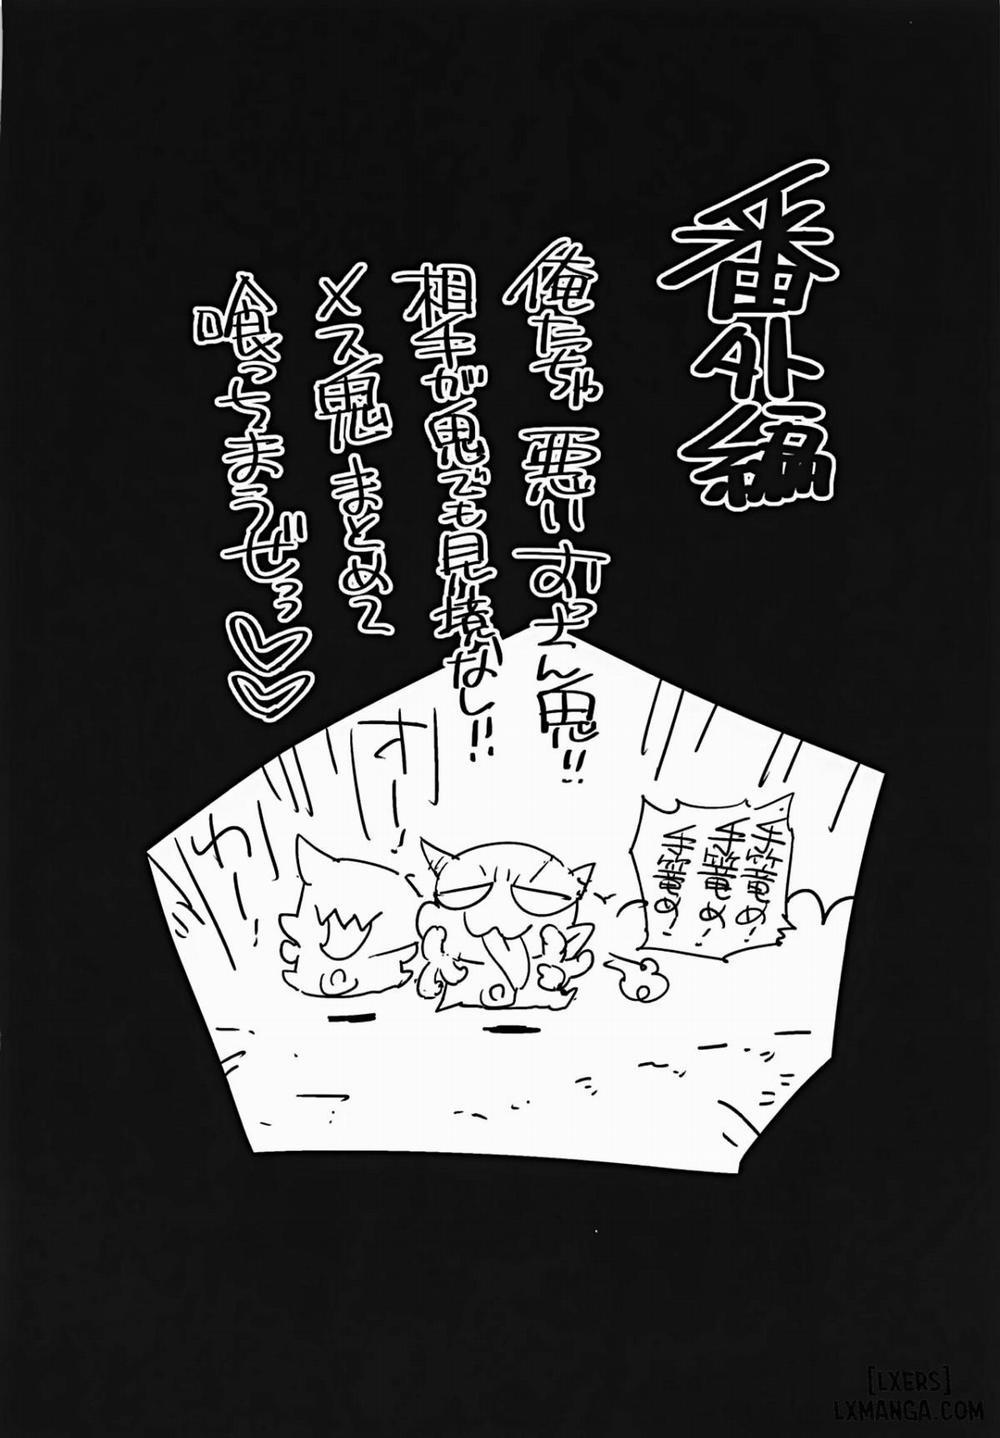 番外編
俺たちゃ悪いおっさん鬼!!
相手が鬼でも見境なし!!
メス鬼まとめて
喰っちまうぜっっ♡♡
手篭め〜
手篭め〜
手篭め〜
[LXERS]
LXMANGA.COM